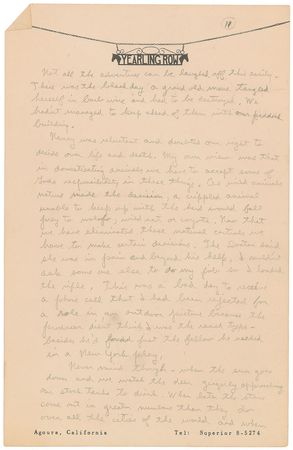 11
YEARLING ROW
Not all the adventure can be laughed off this easily.
There was the black day a grand old mare tangled
herself in barb wire and had to be destroyed. We
hadn't managed to keep ahead of them with our
building.
Nancy was reluctant and doubted our right to
decide over life and death. My own view was that
in domesticating animals we have to accept some of
God's responsibility in these things. As wild animals
nature made the decision, a crippled animal
unable to keep up with the herd would fall
prey to wolf, wild cat or coyote. Now that
we have eliminated these natural controls we
have to make certain decisions. The Doctor said
she was in pain and beyond his help, I couldn't
ask some one else to do my job so I loaded
the rifle. This was a bad day to receive
a phone call that I had been rejected for
a role in an outdoor picture because the
producer didn't think I was the ranch type.
Beside he'd found just the fellow he needed
in a New York play.
Never mind though - when the sun goes
down and we watch the deer gingerly approaching
our stock tanks to drink. When later the stars
come out in greater numbers than they do
over all the cities of the world and when
Agoura, California Tel: Superior 8-5274